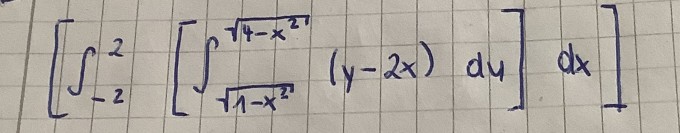 [∫_{-2}^{2} [∫_{√(1-x²)}^{√(4-x²)} (y-2x) dy] dx]